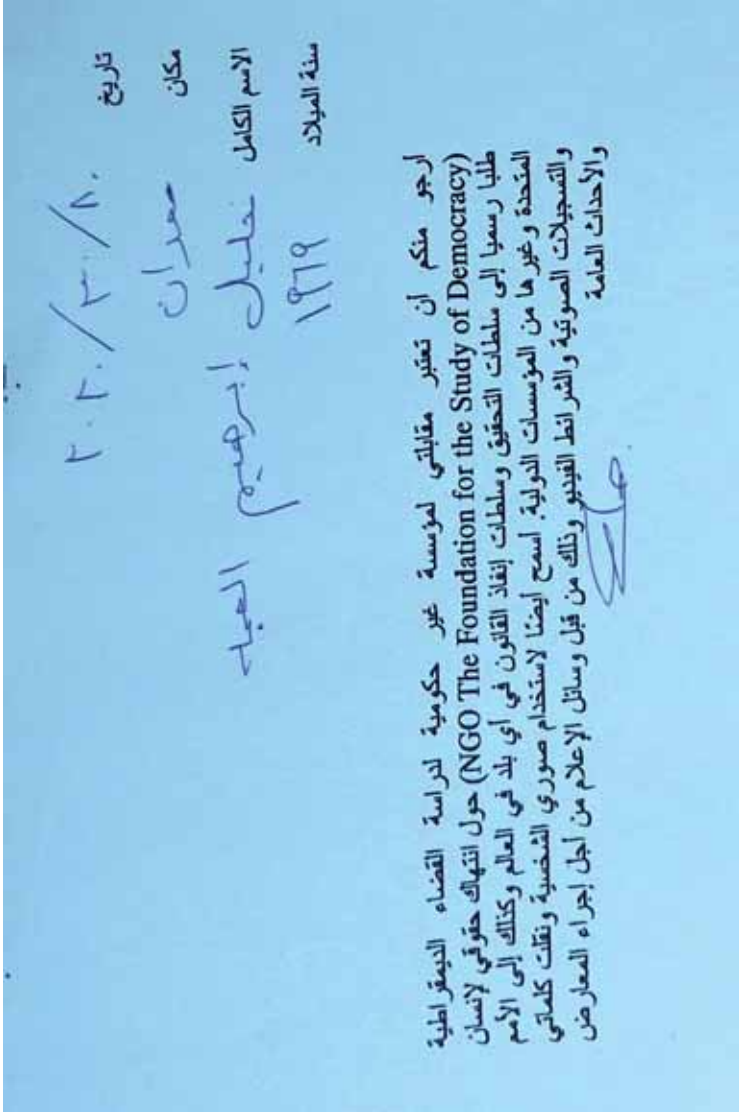 تاريخ ٢٠٢٠/٣٠/٨٠
مكان معدان
الاسم الكامل خليل إبرهيم العبد
سنة الميلاد ١٩٦٩
ارجو منكم أن تعتبر مقابلتي لمؤسسة غير حكومية لدراسة القضاء الديمقراطية
(NGO The Foundation for the Study of Democracy) حول انتهاك حقوقي لإنسان
طلبا رسميا إلى سلطات التحقيق وسلطات إنفاذ القانون في أي بلد في العالم وكذلك إلى الأمم
المتحدة وغيرها من المؤسسات الدولية. اسمح أيضنا لاستخدام صوري الشخصية ونقلت كلماتي
والتسجيلات الصوتية والشرائط الفيديو وذلك من قبل وسائل الإعلام من أجل إجراء المعارض
والأحداث العامة